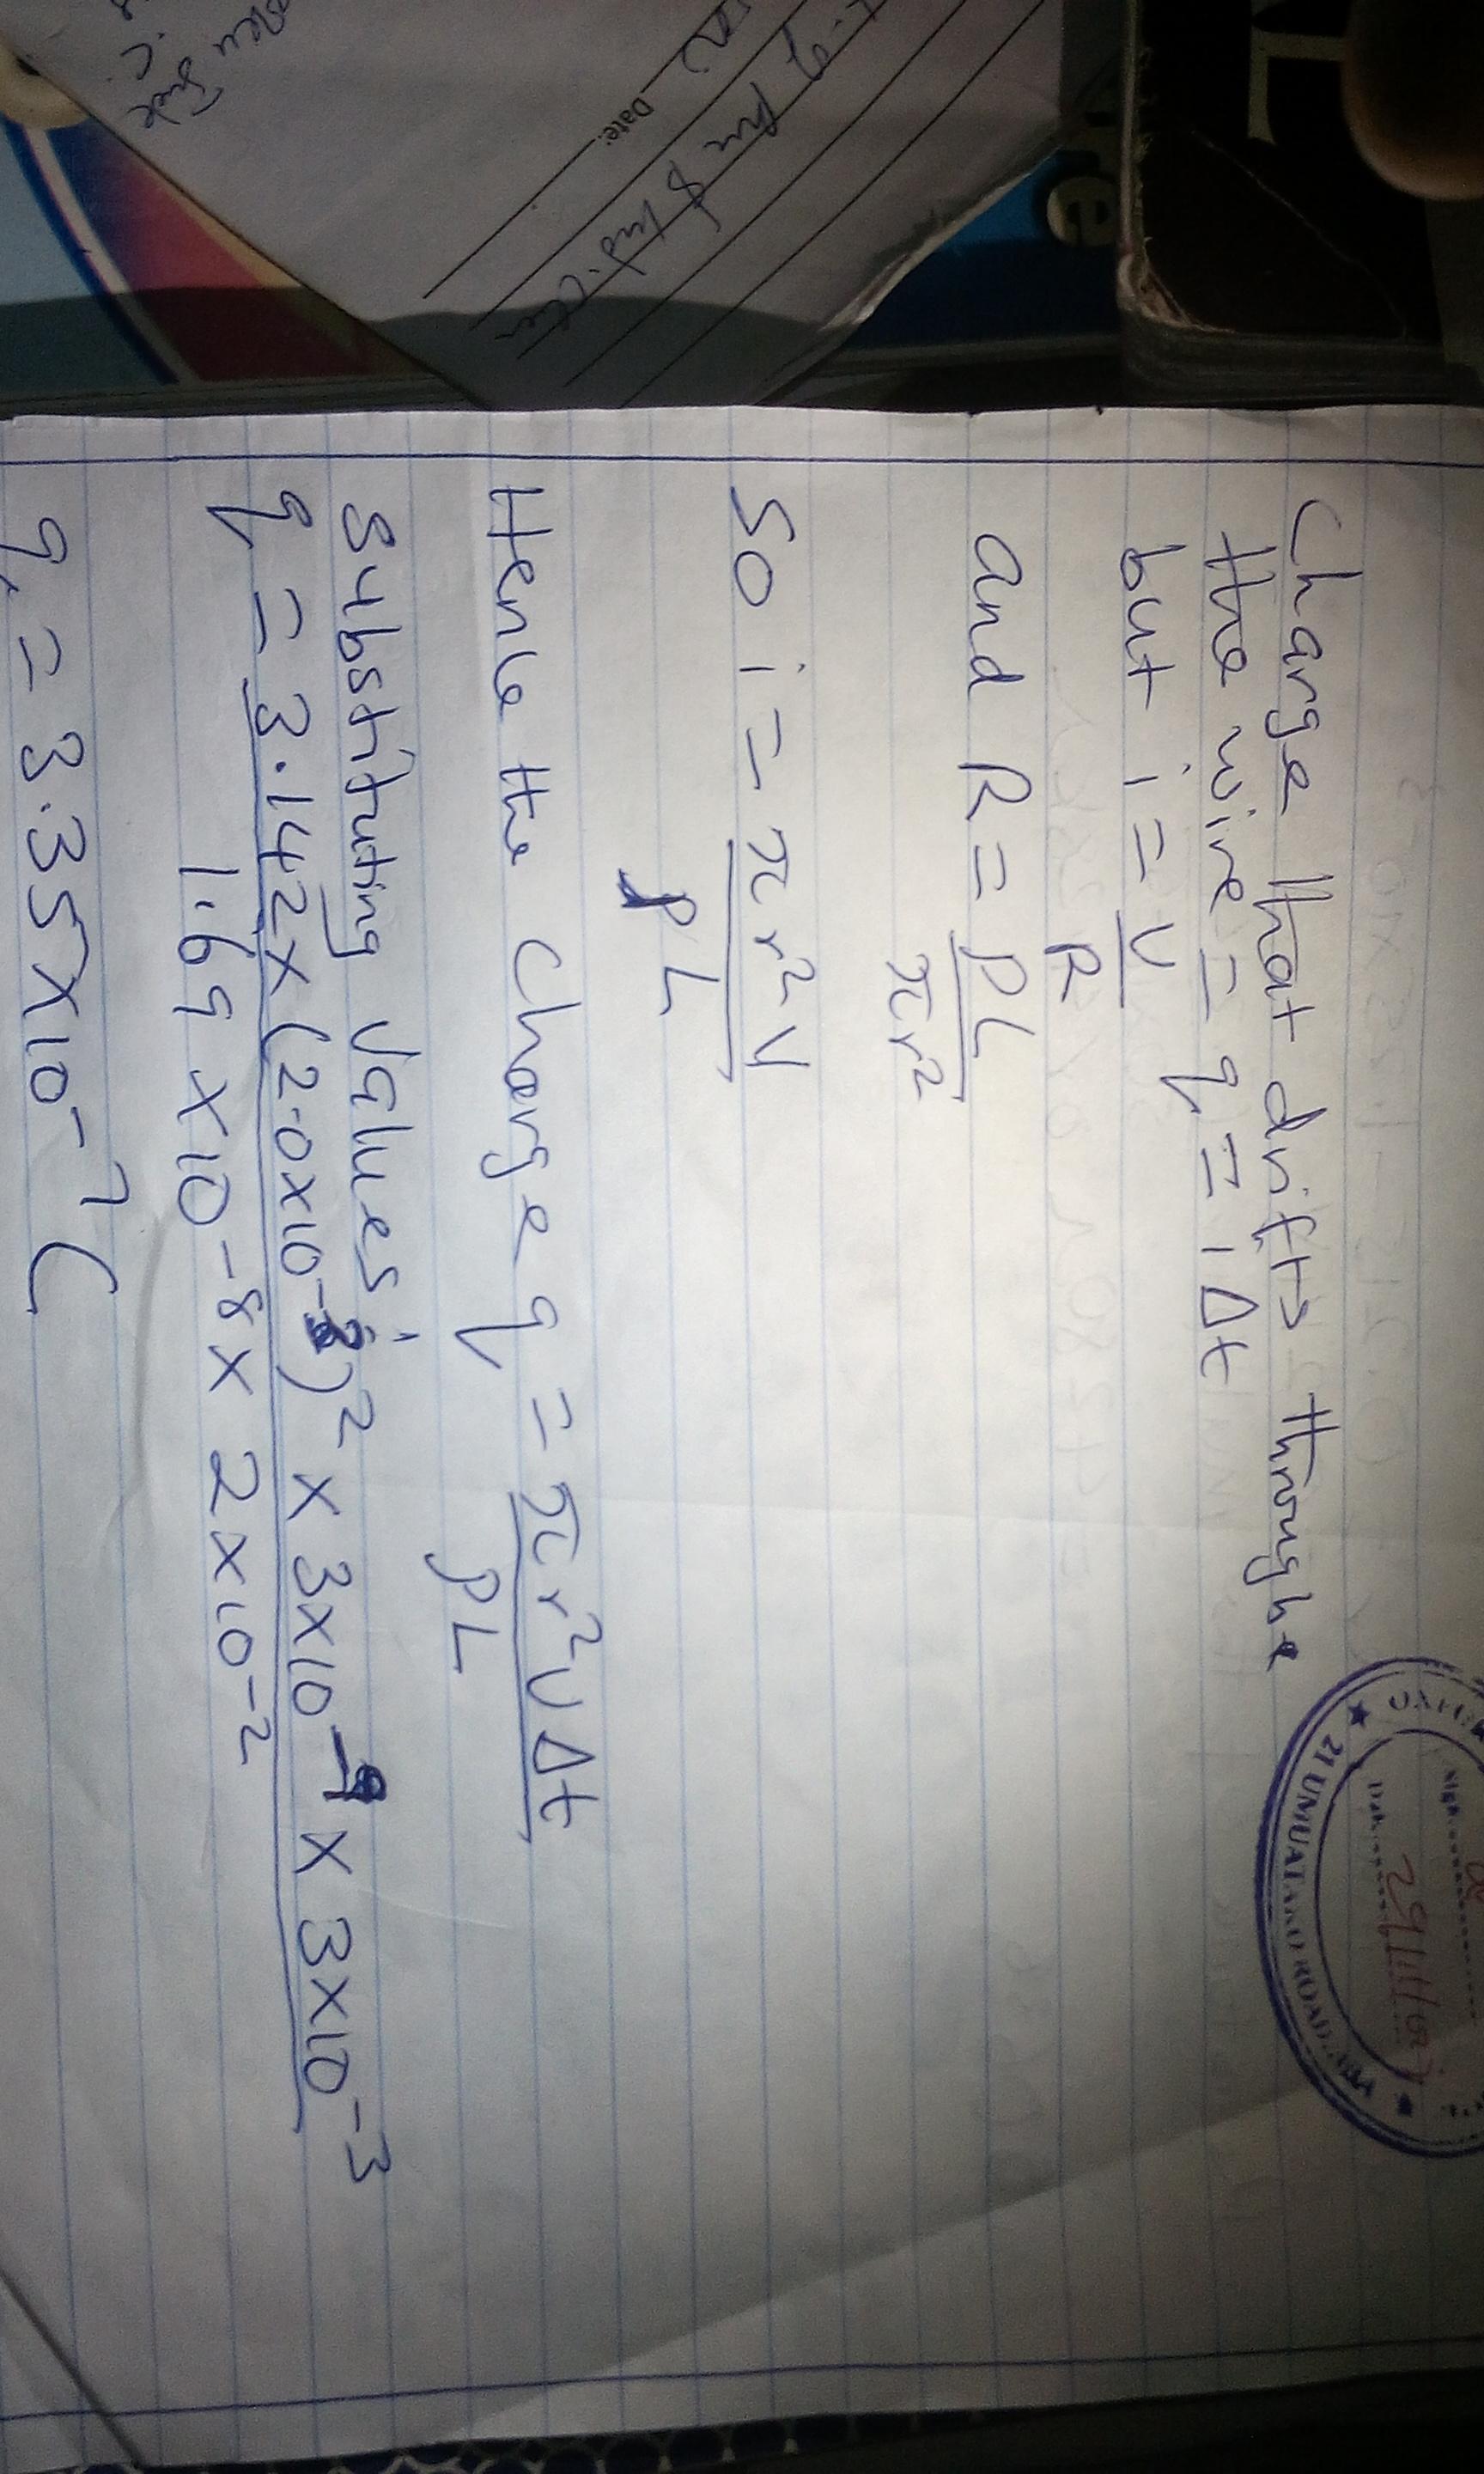 Charge that drifts through
the wire = q = i Δt
but i = V
R
and R = ρL
πr²
So i = πr²V
ρL
Hence the charge q = πr²VΔt
ρL
Substituting Values;
q = 3.142 x (2.0x10⁻³)² x 3x10⁻⁹ x 3x10⁻³
1.69 x 10⁻⁸ x 2x10⁻²
q = 3.35x10⁻⁷C
Date:
21 UMUAT
ROAD
Date